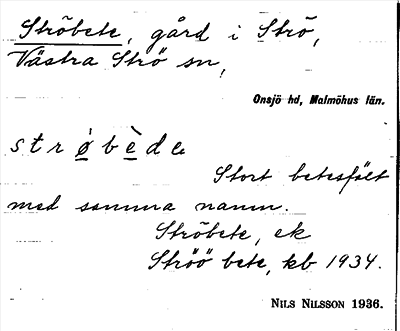 Ströbete, gård i Strö,
Västra Strö sn,
Onsjö hd, Malmöhus län.
strø̀bède
Stort betesfält
med samma namn.
Ströbete, ek
Ströö bete, kb 1934.
NILS NILSSON 1936.